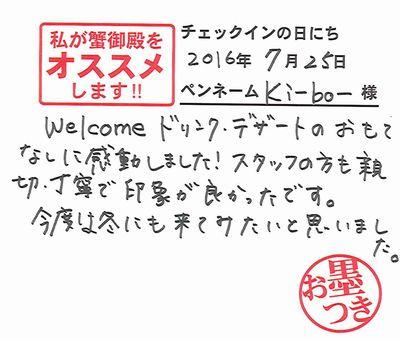 私が蟹御殿を
オススメ
します!!
チェックインの日にち
2016年 7月25日
ペンネーム Ki-bo- 様
Welcome ドリンク・デザートのおもて
なしに感動しました！スタッフの方も親
切・丁寧で印象が良かったです。
今度は冬にも来てみたいと思いまし
た。
お墨つき